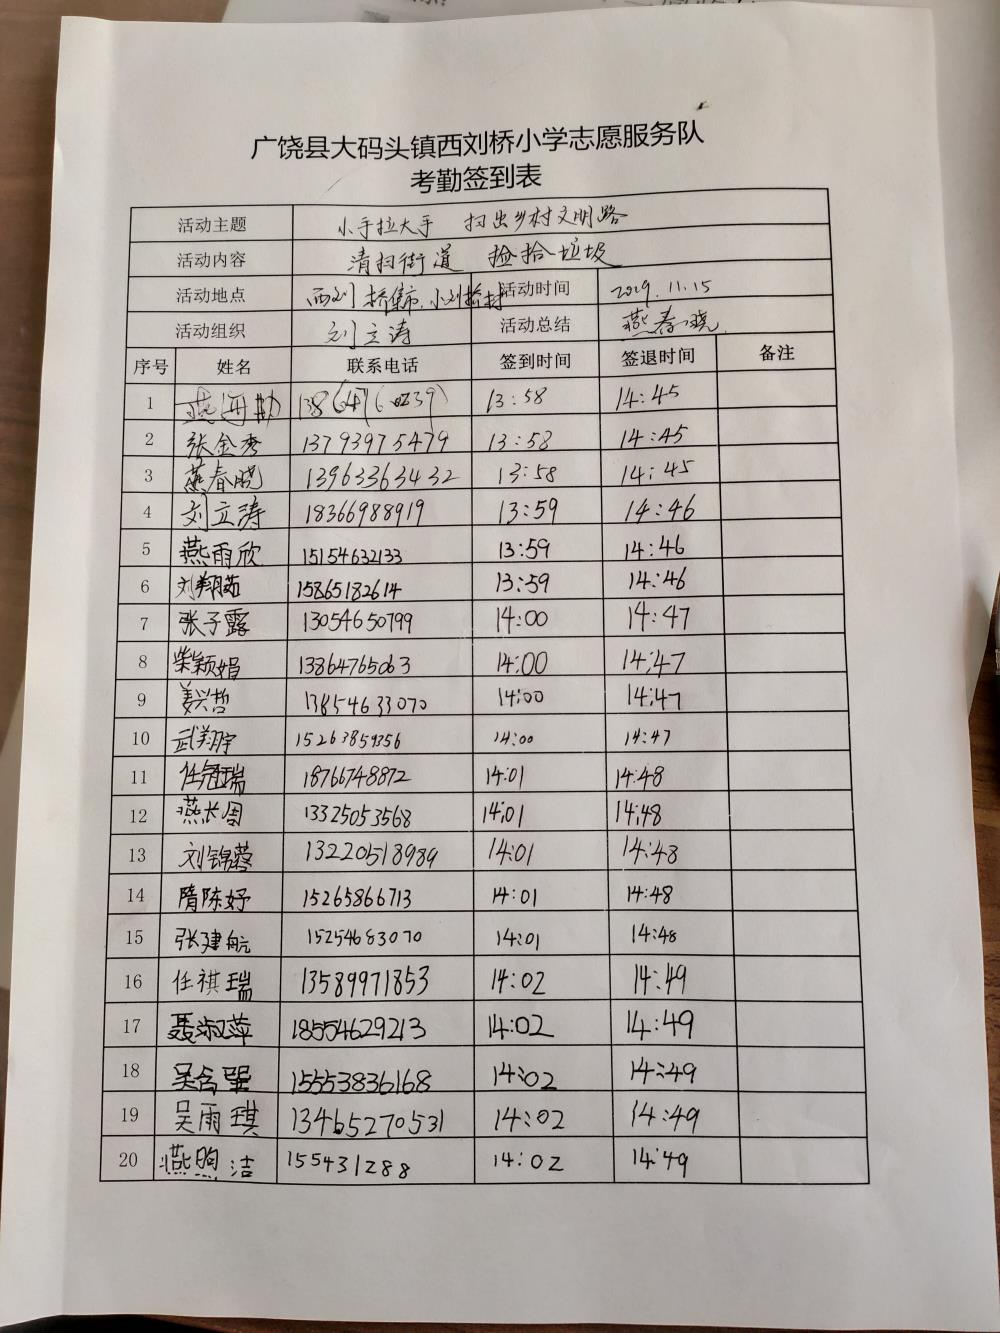 广饶县大码头镇西刘桥小学志愿服务队
考勤签到表
活动主题 小手拉大手 扫出乡村文明路
活动内容 清扫街道 捡拾垃圾
活动地点 西刘桥集市、小刘桥村 活动时间 2019.11.15
活动组织 刘立涛 活动总结 燕春晓
序号 姓名 联系电话 签到时间 签退时间 备注
1 13:58 14:45
2 张金秀 13793975479 13:58 14:45
3 燕春晓 13963363432 13:58 14:45
4 刘立涛 18366988919 13:59 14:46
5 燕雨欣 15154632133 13:59 14:46
6 刘翔茹 15865182614 13:59 14:46
7 张子露 13054650799 14:00 14:47
8 柴颖娟 13864765063 14:00 14:47
9 姜兴哲 13854633070 14:00 14:47
10 武翔宇 15263859356 14:00 14:47
11 任冠瑞 18766748872 14:01 14:48
12 燕长周 13325053568 14:01 14:48
13 刘锦蓉 13220518989 14:01 14:48
14 隋陈妤 15265866713 14:01 14:48
15 张建航 15254683070 14:01 14:48
16 任祺瑞 13589971853 14:02 14:49
17 聂淑萍 18554629213 14:02 14:49
18 15553836168 14:02 14:49
19 吴雨琪 13465270531 14:02 14:49
20 燕煦洁 155431288 14:02 14:49